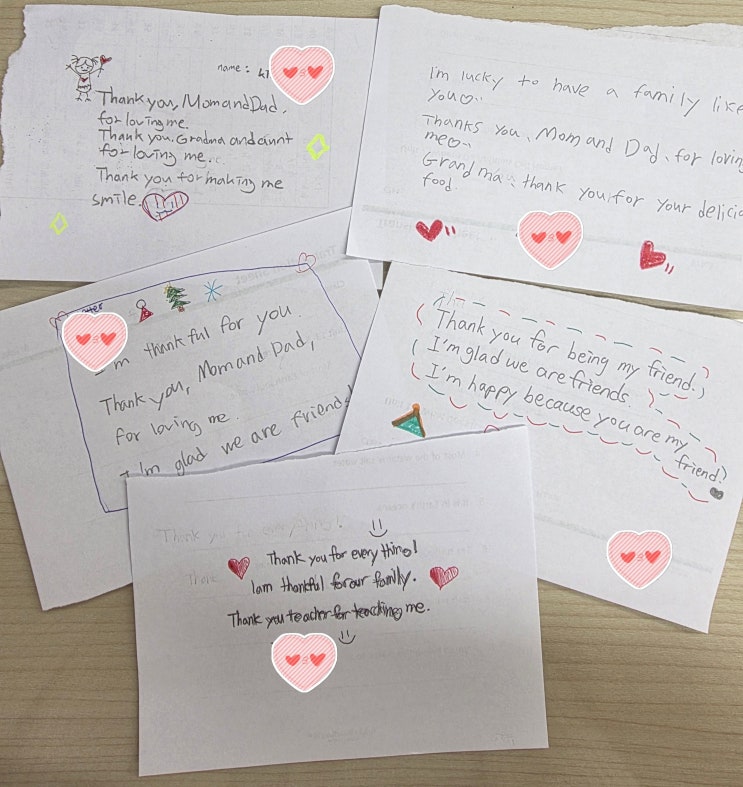 name:
Thank you, Mom and Dad,
for loving me.
Thank you, Gradma and aunt
for loving me.
Thank you for making me
smile.
I'm lucky to have a family like
you
Thanks you, Mom and Dad, for loving
me
Grandma, thank you for your
food.
I'm thankful for you.
Thank you, Mom and Dad,
for loving me.
I'm glad we are friends!
Thank you for being my friend!
I'm glad we are friends.
I'm happy because you are my
friend!
Thank you for everything!
I am thankful for our family.
Thank you teacher for teaching me.